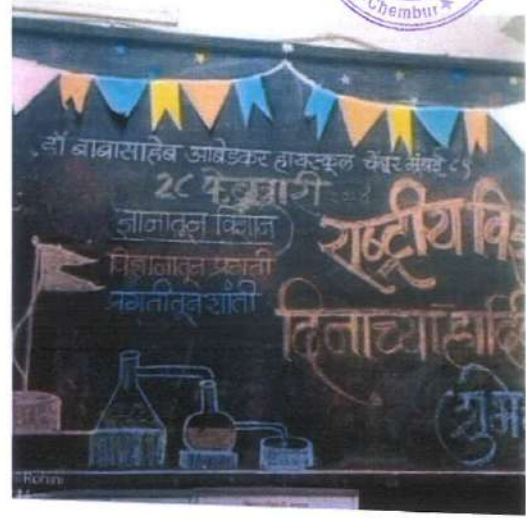 Chembur
डॉ बाबासाहेब आंबेडकर हायस्कूल चेंबूर मुंबई ८९
२८ फेब्रुवारी
ज्ञानातून विज्ञान
विज्ञानातून प्रगती
प्रगतीतून शांती
राष्ट्रीय वि
दिनाच्या हार्दि
शुभे
Rohini